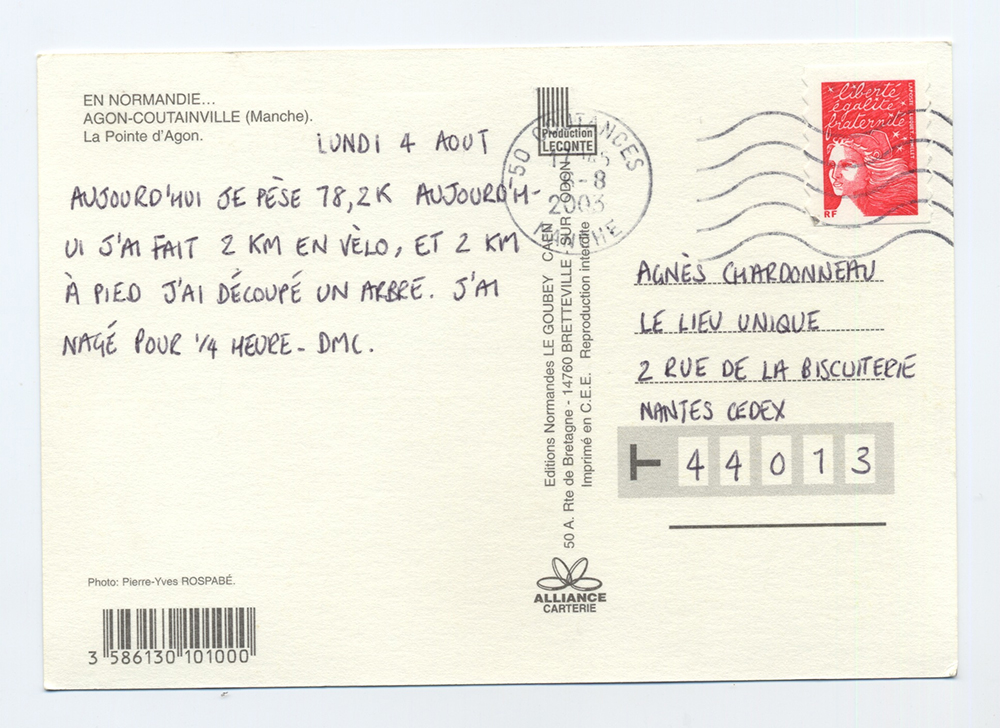 EN NORMANDIE...
AGON-COUTAINVILLE (Manche).
La Pointe d'Agon.
LUNDI 4 AOUT
AUJOURD'HUI JE PÈSE 78,2K AUJOURD'H-
UI J'AI FAIT 2 KM EN VÈLO, ET 2 KM
À PIED J'AI DÉCOUPÉ UN ARBRE. J'AI
NAGÉ POUR 1/4 HEURE - DMC.
Photo: Pierre-Yves ROSPABÉ.
3 586130 101000
Production
LECONTE
50 COUTANCES
-8
2003
MANCHE
Editions Normandes LE GOUBEY CAEN
50 A. Rte de Bretagne - 14760 BRETTEVILLE - SUR - ODON
Imprimé en C.E.E. Reproduction interdite
ALLIANCE
CARTERIE
liberté
égalité
fraternité
RF
AGNÈS CHARDONNEAU
LE LIEU UNIQUE
2 RUE DE LA BISCUITERIE
NANTES CEDEX
44013